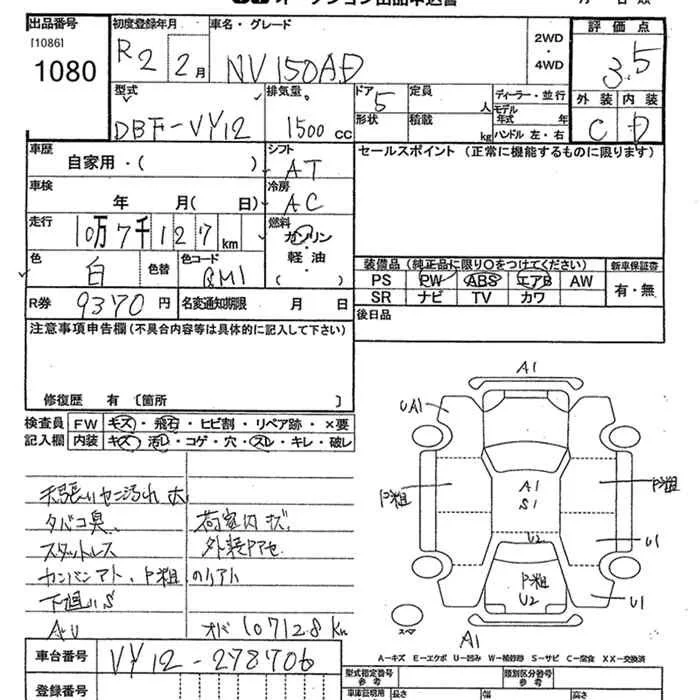 オークション出品申込書
出品番号 初度登録年月 車名・グレード 2WD・4WD 評価点
[1086]
1080 R2 2月 NV150AD 3.5
型式 排気量 ドア 定員 人 ディーラー・並行 外装 内装
DBF-VY12 1500 cc 5 形状 積載 kg モデル年式 年 ハンドル 左・右 C D
車歴 自家用・( ) シフト AT セールスポイント (正常に機能するものに限ります)
車検 年 月( 日) 冷房 AC
走行 10万7千127km 燃料 ガソリン・軽油・( )
色 白 色替 色コード QM1 装備品 (純正品に限り○をつけてください) 新車保証書
PS PW ABS エアB AW 有・無
R券 9370円 名変通知期限 月 日 SR ナビ TV カワ
注意事項申告欄(不具合内容等は具体的に記入して下さい) 後日品
修復歴 有 〔箇所 〕
検査員 FW キズ・飛石・ヒビ割・リペア跡・×要
記入欄 内装 キズ・汚レ・コゲ・穴・スレ・キレ・破レ
タバコ臭、 荷室内キズ
スタットレス 外装
カンバンアト、P粗
下廻りS
AU オド 107128km
A1
UA1
P粗 A1 P粗
S1
U2 U1
P粗
U2 U1
スペア
A1
A-キズ E-エクボ U-凹み W-補修跡 S-サビ C-腐食 XX-交換済
車台番号 VY12-278706 型式指定番号 参考 類別区分番号 参考
登録番号 車庫証明用 参考 長さ 幅 高さ